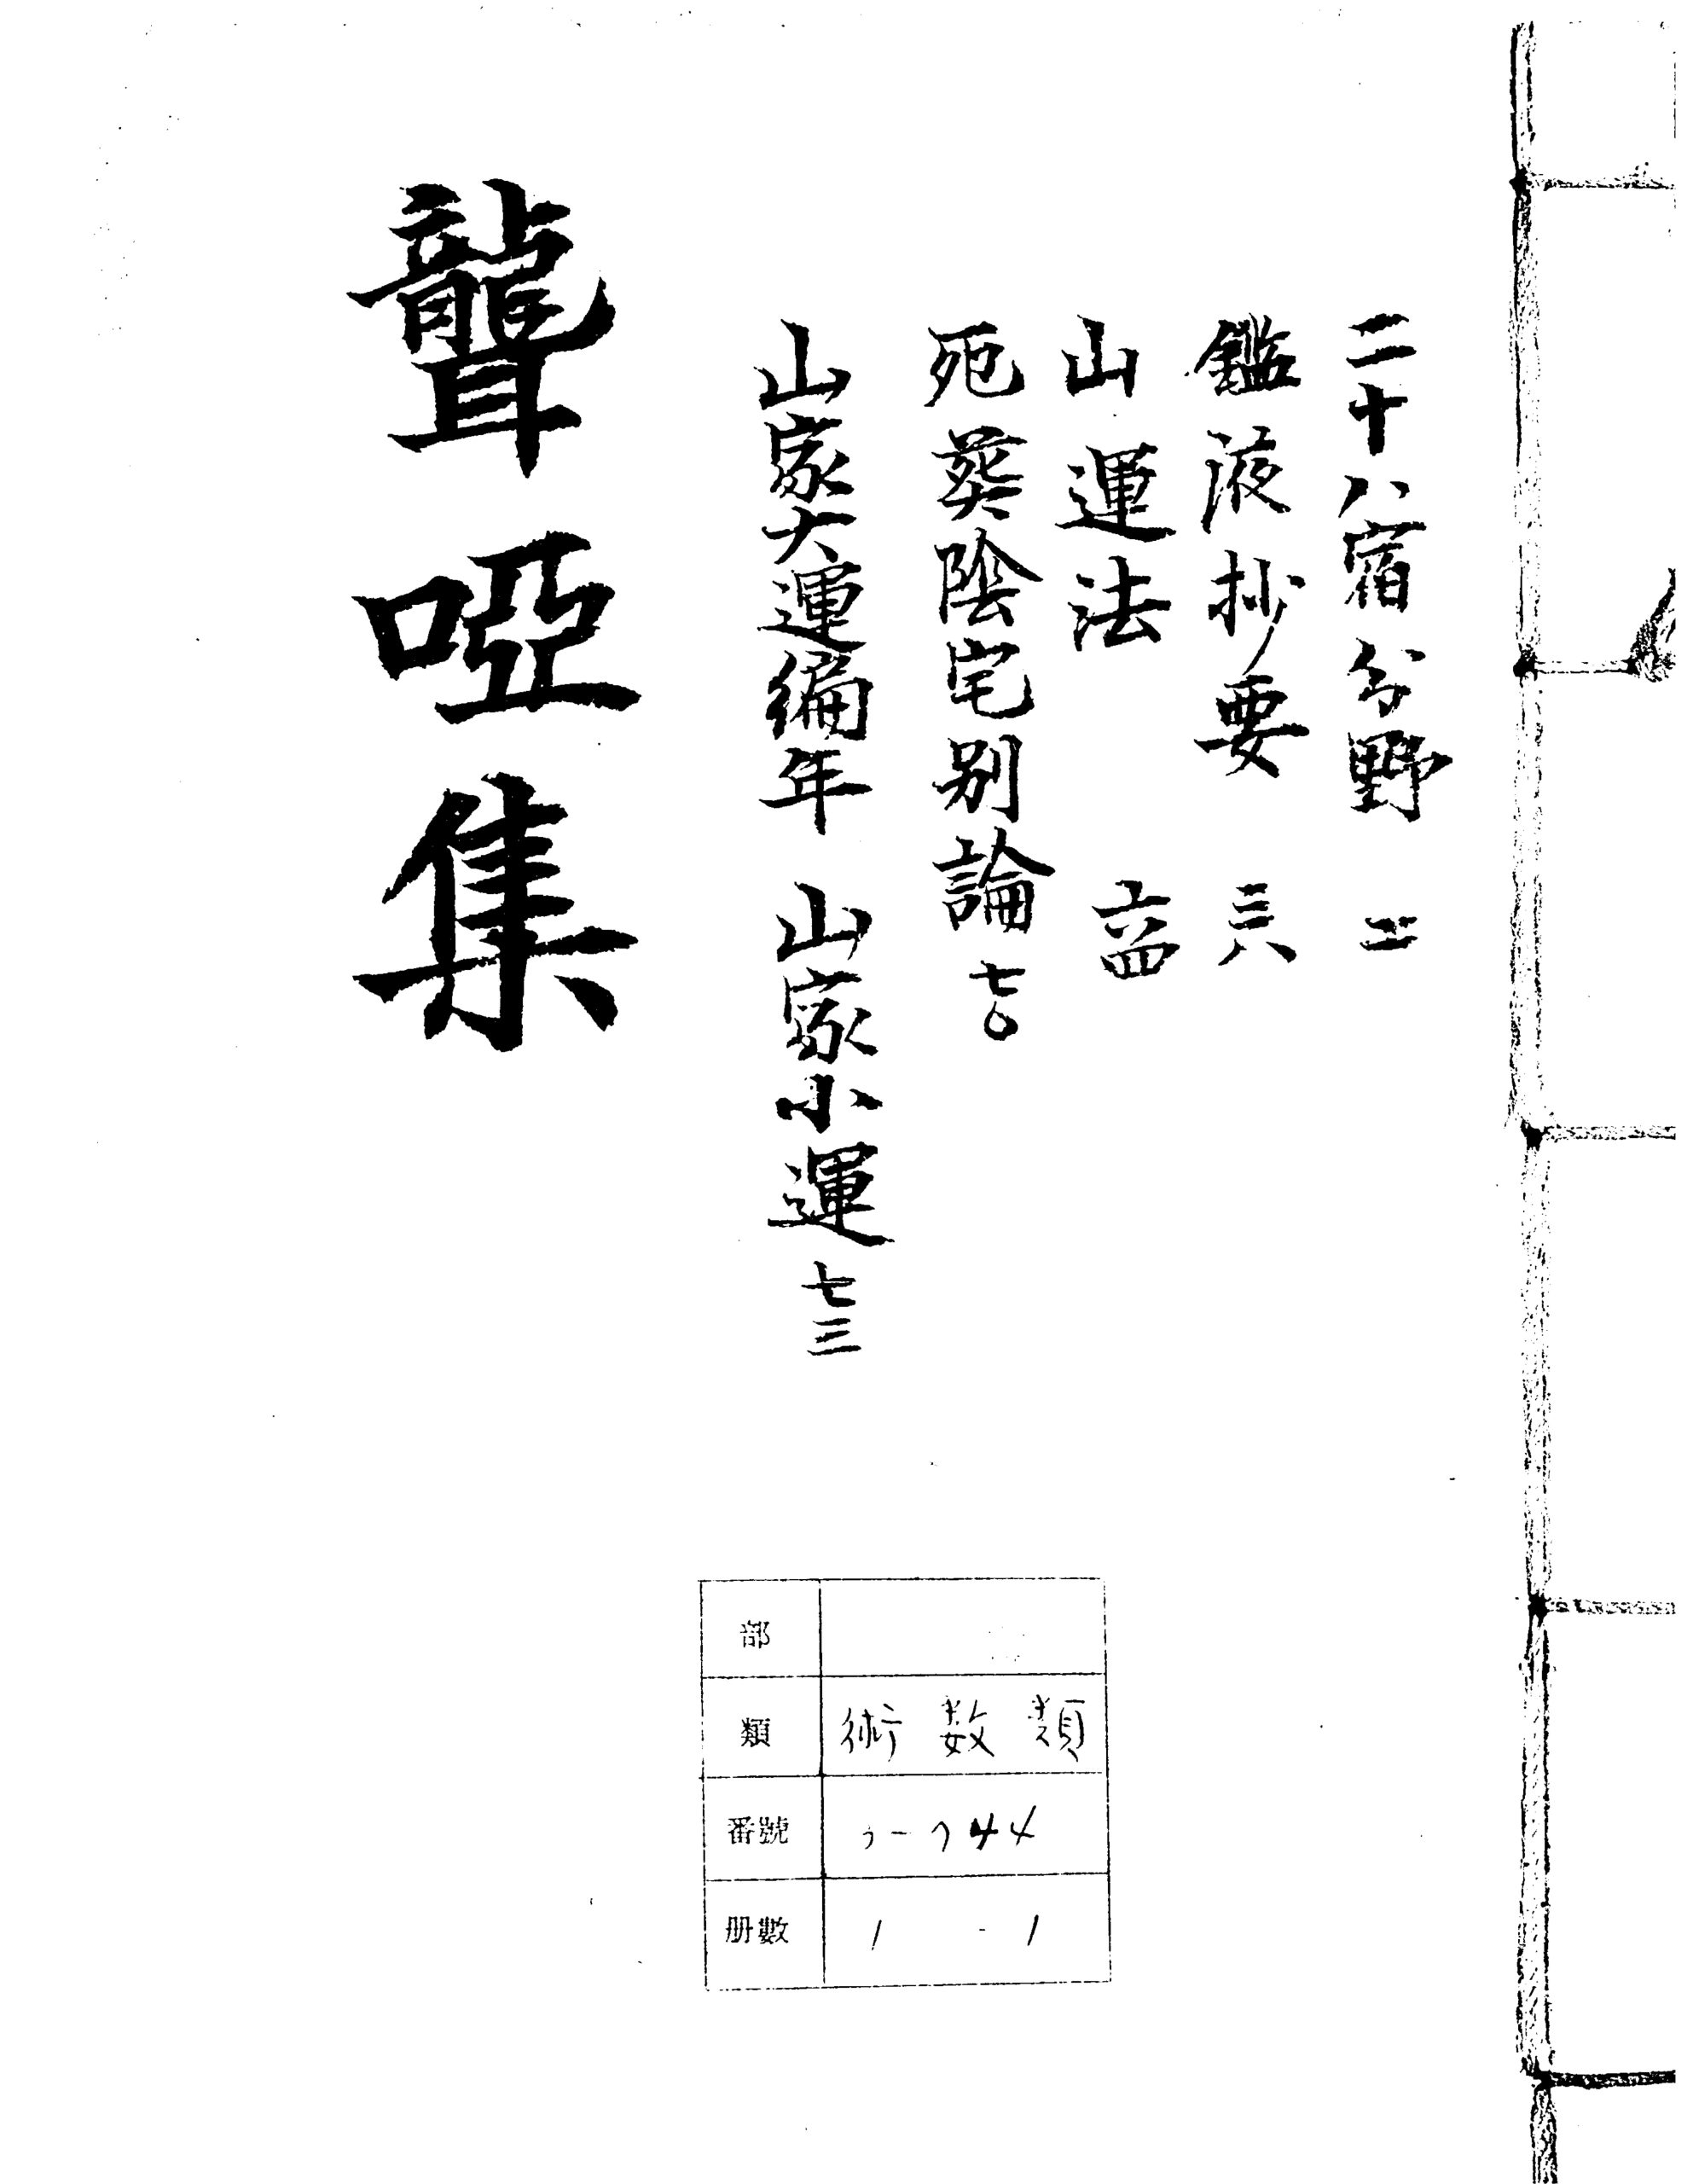 二十八宿分野
鑑液抄要 三八
山運法 六四
死葬陰宅别論 七〇
山家大運編年 山家小運 七三
聾啞集
部
類 術数類
番號
册數 1-1